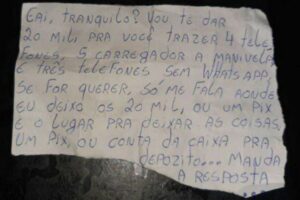 EAI, TRANQUILO? VOU TE DAR
20 MIL, PRA VOCÊ TRAZER 4 TELE
FONES, 5 CARREGADOR A MANIVELA
E TRÊS TELEFONES SEM WHATSAPP,
SE FOR QUERER, SÓ ME FALA AONDE
EU DEIXO OS 20 MIL, OU UM PIX
E O LUGAR PRA DEIXAR AS COISAS
UM PIX, OU CONTA DA CAIXA PRA
DEPOZITO... MANDA
A RESPOSTA